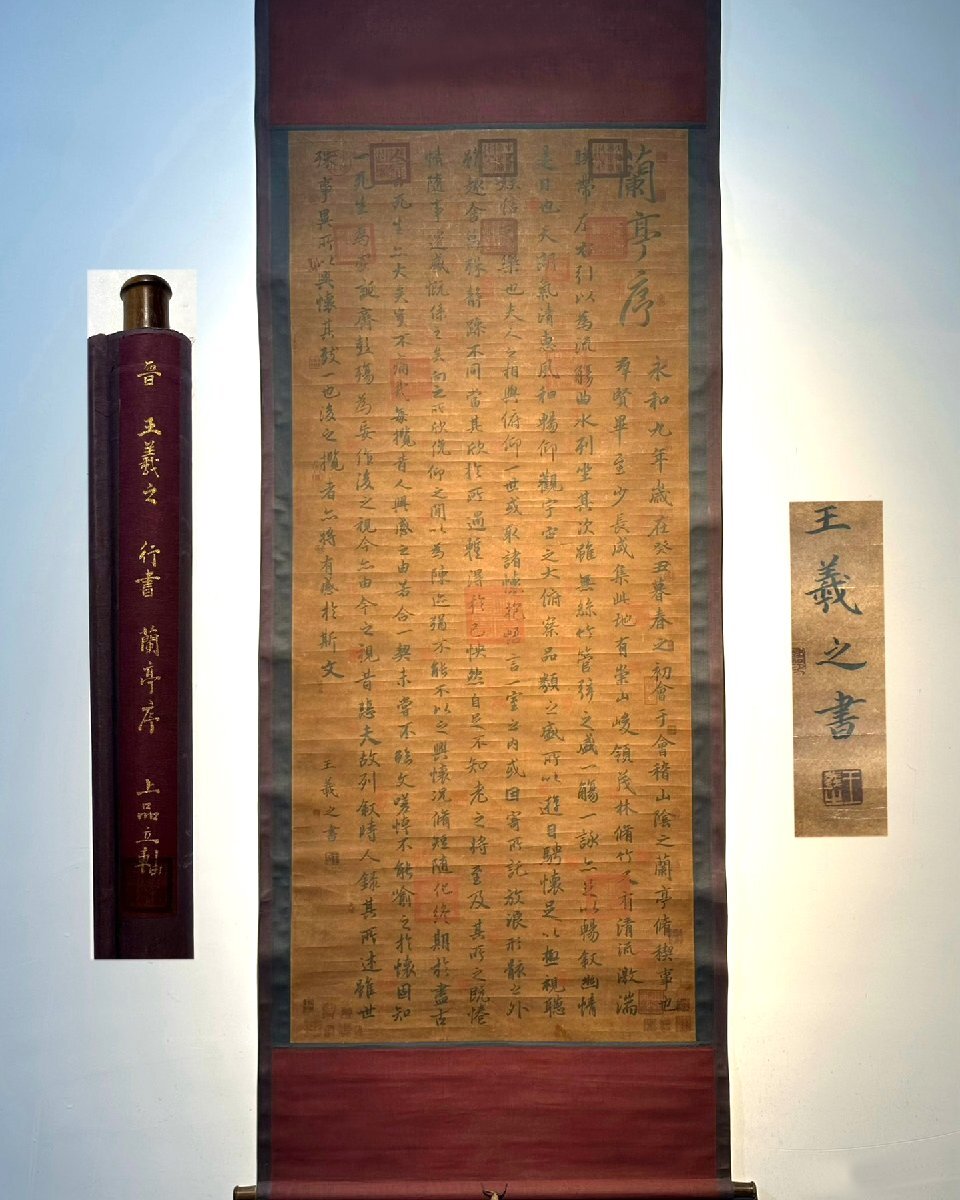 晉 王羲之 行書 蘭亭序 上品立軸
蘭亭序
永和九年歲在癸丑暮春之初會于會稽山陰之蘭亭脩稧事也
羣賢畢至少長咸集此地有崇山峻領茂林脩竹又有清流激湍
暎帶左右引以為流觴曲水列坐其次雖無絲竹管弦之盛一觴一詠亦足以暢叙幽情
是日也天朗氣清惠風和暢仰觀宇宙之大俯察品類之盛所以遊目騁懷足以極視聽
之娛信可樂也夫人之相與俯仰一世或取諸懷抱悟言一室之內或因寄所託放浪形骸之外
雖趣舍萬殊静躁不同當其欣於所遇暫得於己快然自足不知老之將至及其所之既惓
情隨事遷感慨係之矣向之所欣俛仰之間以為陳迹猶不能不以之興懷況脩短隨化終期於盡古
人云死生亦大矣豈不痛哉每攬昔人興感之由若合一契未嘗不臨文嗟悼不能喻之於懷固知
一死生為虛誕齊彭殤為妄作後之視今亦由今之視昔悲夫故列叙時人錄其所述雖世
殊事異所以興懷其致一也後之攬者亦將有感於斯文
王羲之書
王羲之書